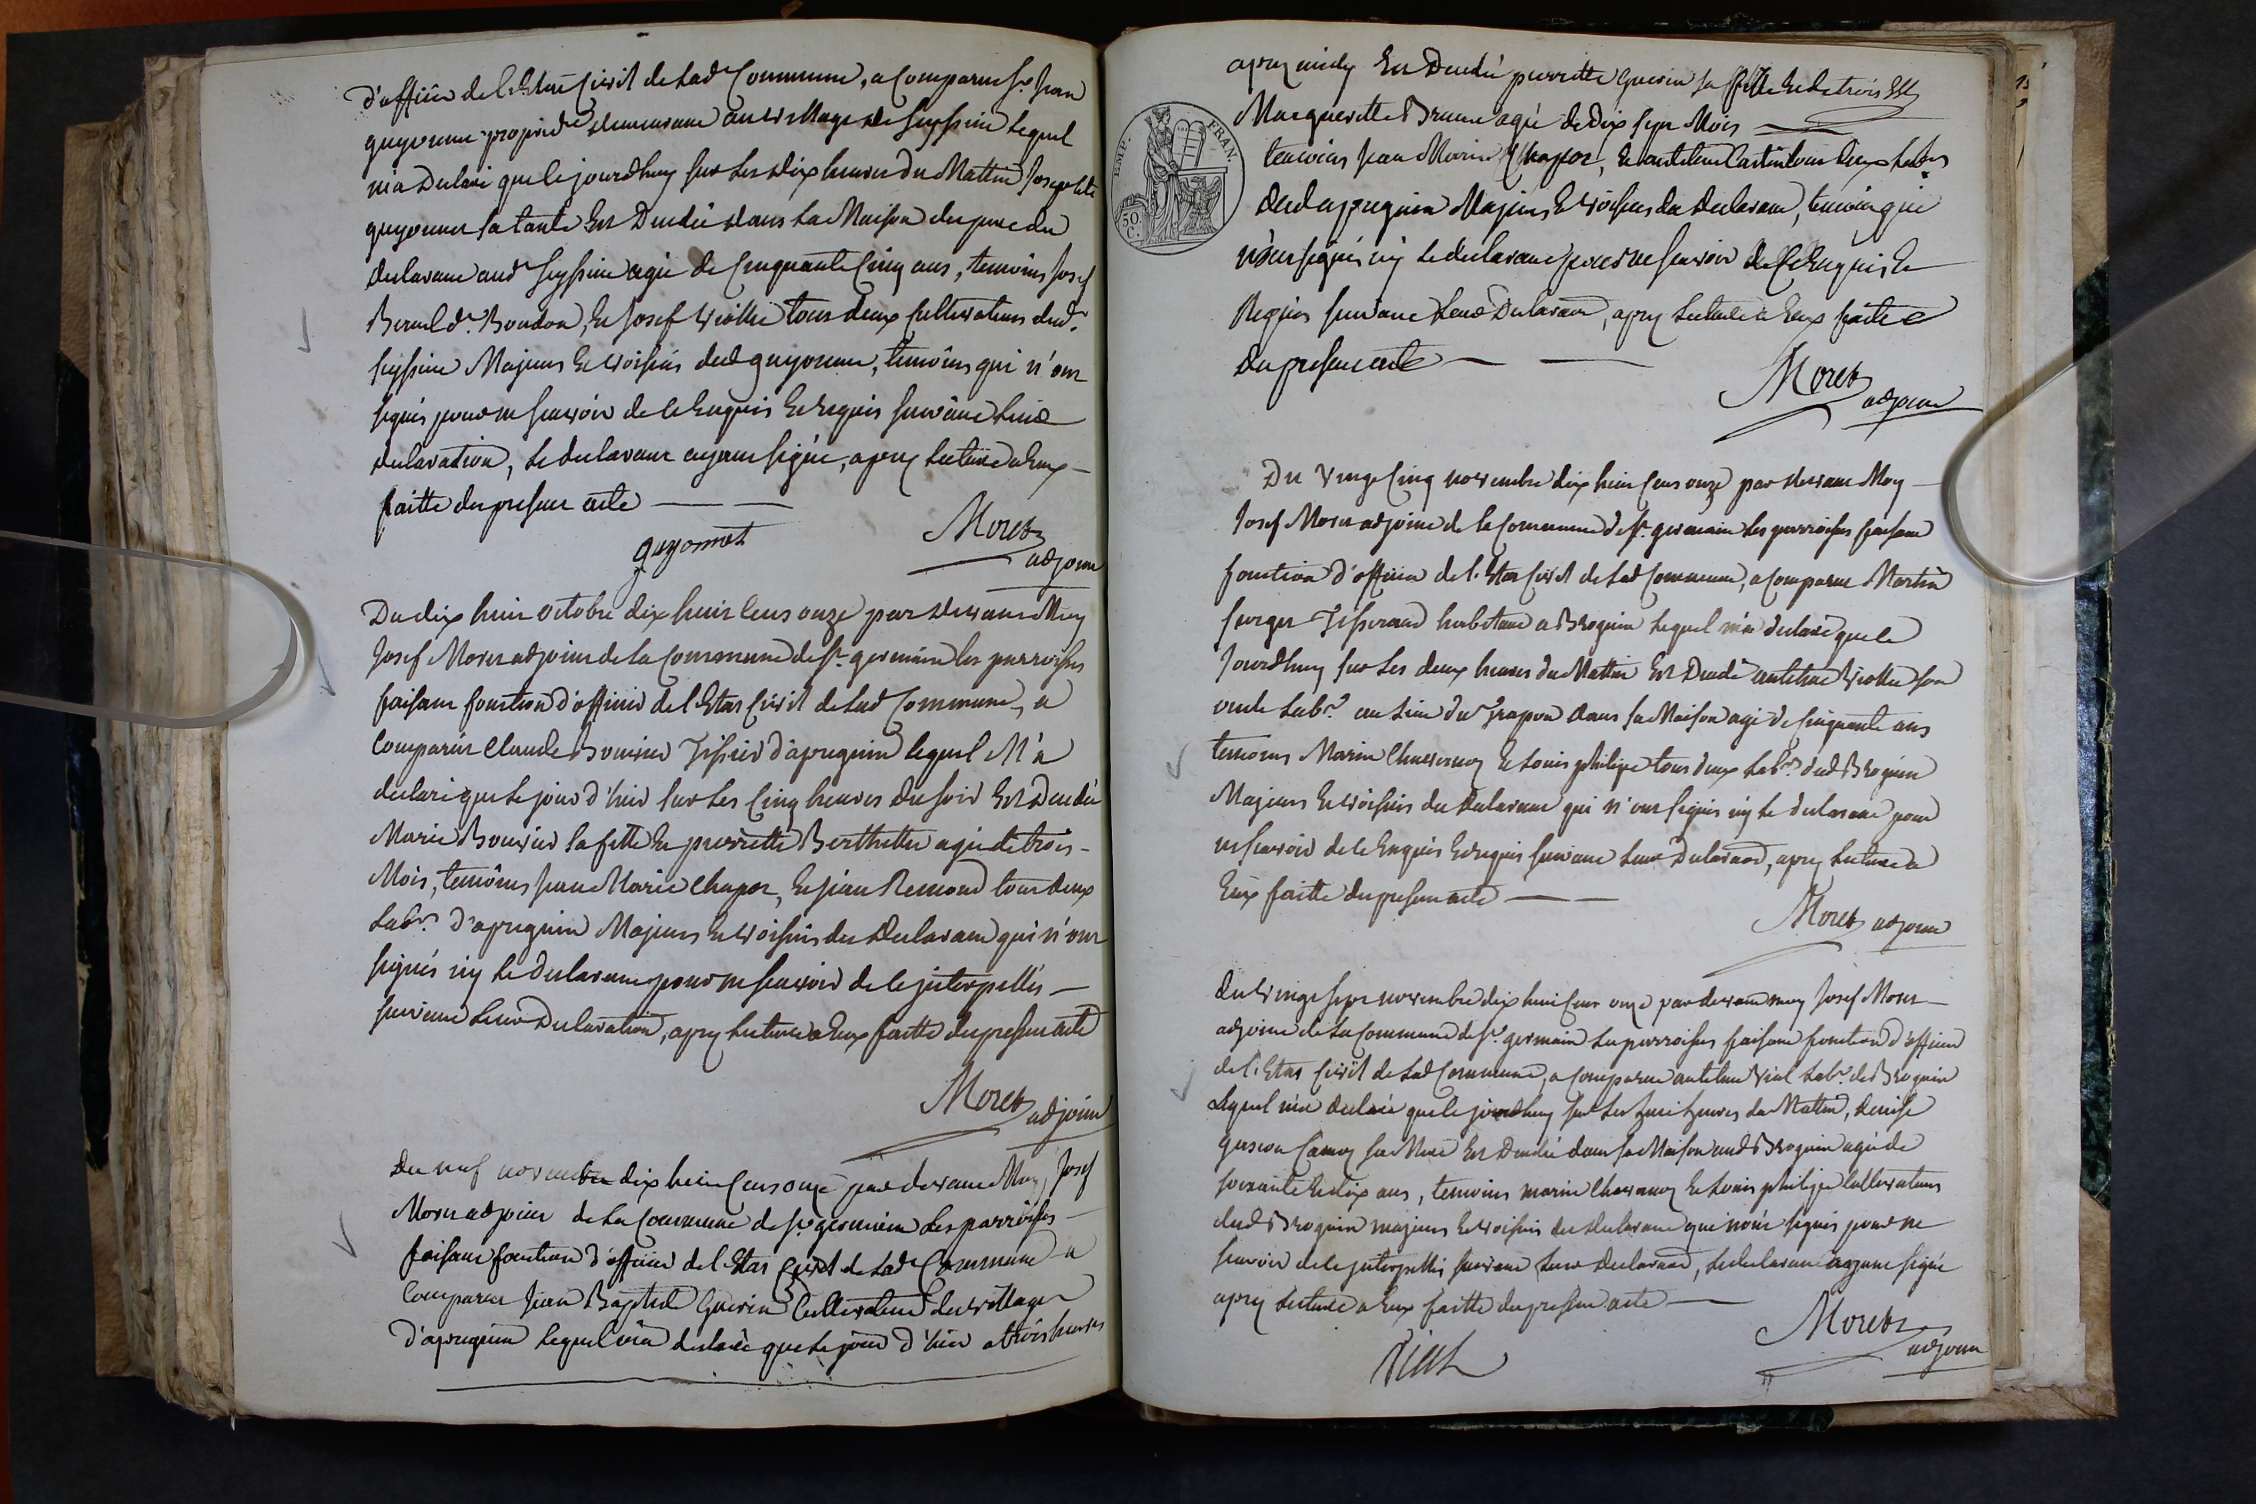 d'officier de l'Etat Civil de lad.e Commune, a Comparu s.r Jean
guyonnet propried.re demeurant au village de seyssieu lequel
m'a declaré que le jourdhuy sur les dix heures du Mattin
guyonnet sa tante Est Decedée dans la Maison du
declarant aud. seyssieu agée de Cinquante Cinq ans, temoins Josef
d.t Boudon, Et Josef Viollet tous deux Cultivateurs dud.
seyssieu Majeurs Et voisins dud guyonnet, temoins qui n'ont
signés pour ne scavoir de ce Enquis Et requis suivant leur
declaration, le declarant ayant signé, apres lecture a Eux
faitte du present acte
guyonnet
Moret
adjoint
Du dix huit octobre dix huit Cens onze par devant Moy
Josef Moret adjoint de la Commune de s.t germain les parroisses
faisant fonction d'officier de l'Etat Civil de lad Commune, a
Comparu Claude Bouvier Tissier d'apreguin lequel M'a
declaré que le jour d'hier sur les Cinq heures du soir Est Decedée
Marie Bouvier sa fille Et pierrette Berthettier agée de trois
Mois, temoins Jean Marie Chapot, Et jean Remond tous deux
lab.rs d'apreguin Majeurs Et voisins du Declarant qui n'ont
signés ny le declarant pour ne scavoir de ce jnterpellés
suivant leur Declaration, apres lecture a Eux faitte du present acte
Moret
adjoint
Du neuf novembre dix huit Cens onze par devant Moy Josef
Moret adjoint de la Commune de s.t germain les parroisses
faisant fonction d'officier de l'Etat Civil de lad Commune a
Comparu Jean Baptiste Guerin Cultivateur du village
d'apreguin lequel m'a declaré que le jour d'hier a trois heures
apres midy Est Decedée pierrette Guerin sa fille Et de
Marguerite Brunet agée de Dix sept Mois
EMP. FRAN.
50 C.
temoins Jean Marie Chapot, Et antelme deux lab.rs
dud apreguin Majeurs Et voisins du Declarant, temoins qui
n'ont signés ny le declarant pour ne scavoir de ce Enquis Et
Requis suivant leur Declaration, apres lecture a Eux faitte
du present acte
Moret
adjoint
Du vingt Cinq novembre dix huit Cens onze par devant Moy
Josef Moret adjoint de la Commune de s.t germain les parroisses faisant
fonction d'officier de l'Etat Civil de lad Commune, a Comparu Martin
Tisserand habitant a Brognin lequel m'a declaré que le
Jourdhuy sur les deux heures du Mattin Est Decedé antelme Viollet son
oncle lab.r au lieu du Grapon dans sa Maison agé de Cinquante ans
temoins Marin Charvray Et Louis philipe tous deux lab.rs dud Brognin
Majeurs Et voisins du declarant qui n'ont signés ny le declarant pour
ne scavoir de ce Enquis Et requis suivant leur Declaration, apres lecture a
Eux faitte du present acte
Moret adjoint
du vingt sept novembre dix huit Cens onze par devant moy Josef Moret
adjoint de la Commune de s.t germain les parroisses faisant fonction d'officier
de l'Etat Civil de lad Commune, a Comparu antelme Vial lab.r de Brognin
Lequel m'a declaré que le jourdhuy sur les huit heures du Mattin, denise
sa Mere Est Decedée dans sa Maison aud Brognin agée de
soixante et dix ans, temoins marin Charvray Et Louis philipe Cultivateurs
dud Brognin majeurs Et voisins du declarant qui n'ont signés pour ne
scavoir de ce jnterpellés suivant leur declaration, le declarant ayant signé
apres lecture a Eux faitte du present acte
Moret
adjoint
Vial